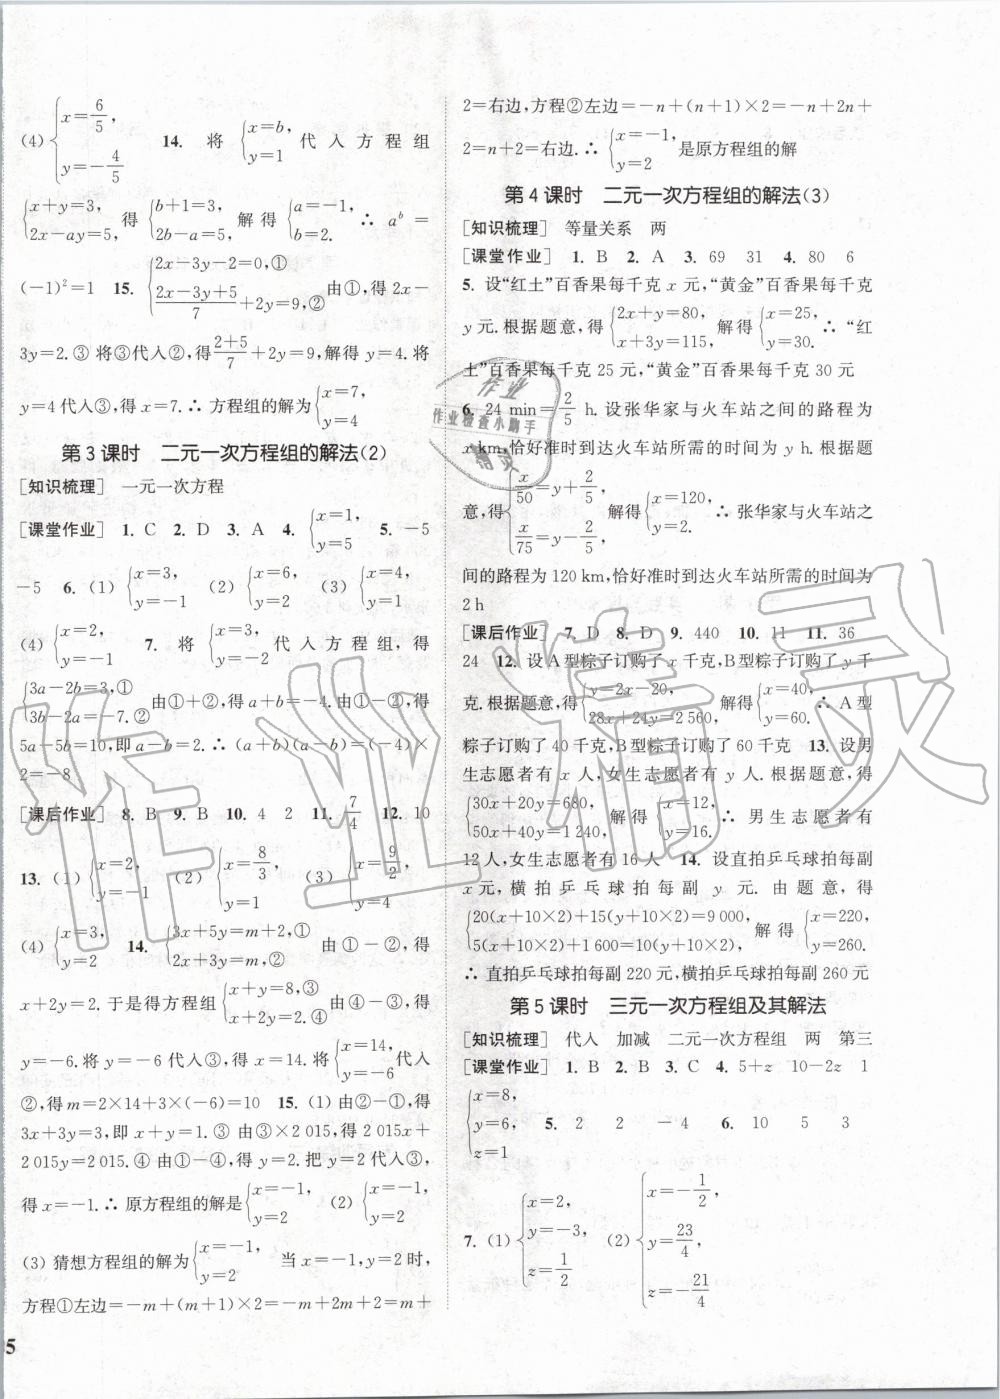 (4){x=6/5, y=-4/5 14. 将{x=b, y=1 代入方程组
{x+y=3, 2x-ay=5, 得{b+1=3, 2b-a=5, 解得{a=-1, b=2. ∴ a^b=
(-1)²=1 15. {2x-3y-2=0,① (2x-3y+5)/7+2y=9,② 由①,得 2x-
3y=2.③ 将③代入②,得(2+5)/7+2y=9,解得 y=4. 将
y=4代入③,得 x=7. ∴ 方程组的解为{x=7, y=4
第 3 课时 二元一次方程组的解法(2)
[知识梳理] 一元一次方程
[课堂作业] 1. C 2. D 3. A 4. {x=1, y=5 5. -5
-5 6. (1) {x=3, y=-1 (2) {x=6, y=2 (3) {x=4, y=1
(4) {x=2, y=-1 7. 将 {x=3, y=-2 代入方程组,得
{3a-2b=3,① 3b-2a=-7.② 由①+②,得 a+b=-4. 由①-②,得
5a-5b=10,即 a-b=2. ∴ (a+b)(a-b)=(-4)×
2=-8
[课后作业] 8. B 9. B 10. 4 2 11. 7/4 12. 10
13. (1) {x=2, y=-1 (2) {x=8/3, y=1 (3) {x=9/2, y=4
(4) {x=3, y=2 14. {3x+5y=m+2,① 2x+3y=m,② 由①-②,得
x+2y=2. 于是得方程组{x+y=8,③ x+2y=2.④ 由④-③,得
y=-6. 将 y=-6 代入③,得 x=14. 将{x=14, y=-6 代入
②,得 m=2×14+3×(-6)=10 15. (1) 由②-①,得
3x+3y=3,即 x+y=1.③ 由③×2 015,得 2 015x+
2 015y=2 015.④ 由①-④,得 y=2. 把 y=2代入③,
得 x=-1. ∴ 原方程组的解是{x=-1, y=2 (2) {x=-1, y=2
(3) 猜想方程组的解为{x=-1, y=2 当 x=-1,y=2 时,
方程①左边=-m+(m+1)×2=-m+2m+2=m+
5
2=右边,方程②左边=-n+(n+1)×2=-n+2n+
2=n+2=右边. ∴ {x=-1, y=2 是原方程组的解
第 4 课时 二元一次方程组的解法(3)
[知识梳理] 等量关系 两
[课堂作业] 1. B 2. A 3. 69 31 4. 80 6
5. 设“红土”百香果每千克 x 元,“黄金”百香果每千克
y 元. 根据题意,得{2x+y=80, x+3y=115, 解得{x=25, y=30. ∴ “红
土”百香果每千克 25 元,“黄金”百香果每千克 30 元
6. 24 min=2/5 h. 设张华家与火车站之间的路程为
x km,恰好准时到达火车站所需的时间为 y h. 根据题
意,得{x/50=y+2/5, x/75=y-2/5, 解得{x=120, y=2. ∴ 张华家与火车站之
间的路程为 120 km,恰好准时到达火车站所需的时间为
2 h
[课后作业] 7. D 8. D 9. 440 10. 11 11. 36
24 12. 设 A 型粽子订购了 x 千克,B型粽子订购了 y 千
克. 根据题意,得{y=2x-20, 28x+24y=2 560, 解得{x=40, y=60. ∴ A 型
粽子订购了 40 千克,B型粽子订购了 60 千克 13. 设男
生志愿者有 x 人,女生志愿者有 y 人. 根据题意,得
{30x+20y=680, 50x+40y=1 240, 解得{x=12, y=16. ∴ 男生志愿者有
12 人,女生志愿者有 16 人 14. 设直拍乒乓球拍每副
x 元,横拍乒乓球拍每副 y 元. 由题意,得
{20(x+10×2)+15(y+10×2)=9 000, 5(x+10×2)+1 600=10(y+10×2), 解得{x=220, y=260.
∴ 直拍乒乓球拍每副 220 元,横拍乒乓球拍每副 260 元
第 5 课时 三元一次方程组及其解法
[知识梳理] 代入 加减 二元一次方程组 两 第三
[课堂作业] 1. B 2. B 3. C 4. 5+z 10-2z 1
{x=8, y=6, z=1 5. 2 2 -4 6. 10 5 3
7. (1) {x=2, y=-3, z=1/2 (2) {x=-1/2, y=23/4, z=-21/4
作业
作业检查小助手
精灵
作业精灵